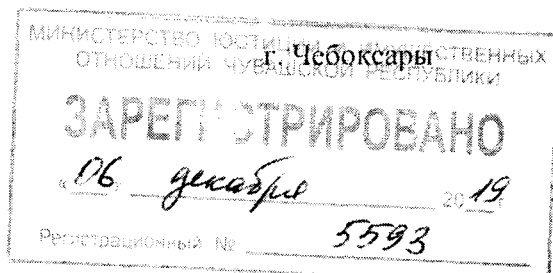 МИНИСТЕРСТВО ЮСТИЦИИ И ИМУЩЕСТВЕННЫХ
г. Чебоксары
ОТНОШЕНИЙ ЧУВАШСКОЙ РЕСПУБЛИКИ
ЗАРЕГИСТРИРОВАНО
«06» декабря 2019 г.
Регистрационный № 5593